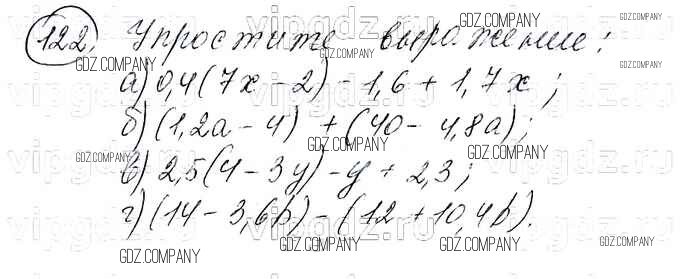 122. Упростите выражение:
а) 0,4(7x - 2) - 1,6 + 1,7x;
б) (1,2a - 4) + (40 - 4,8a);
в) 2,5(4 - 3y) - y + 2,3;
г) (14 - 3,6b) - (12 + 10,4b).